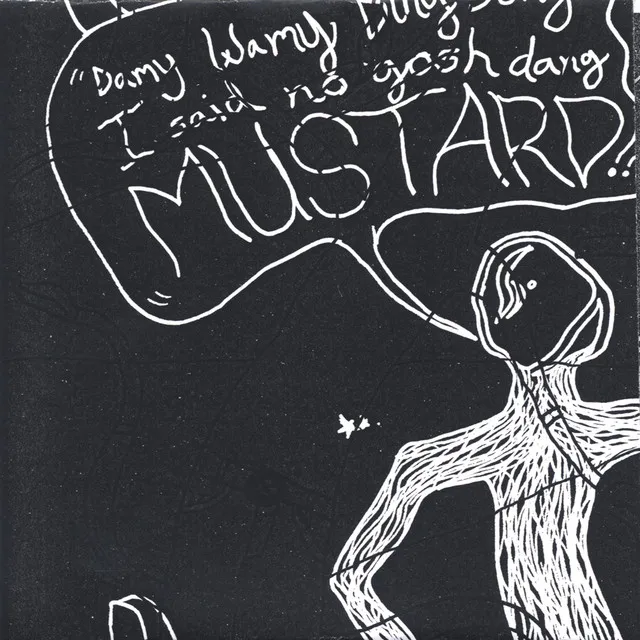 "Damy Wamy Ding Dong
I said no gosh dang
MUSTARD!!